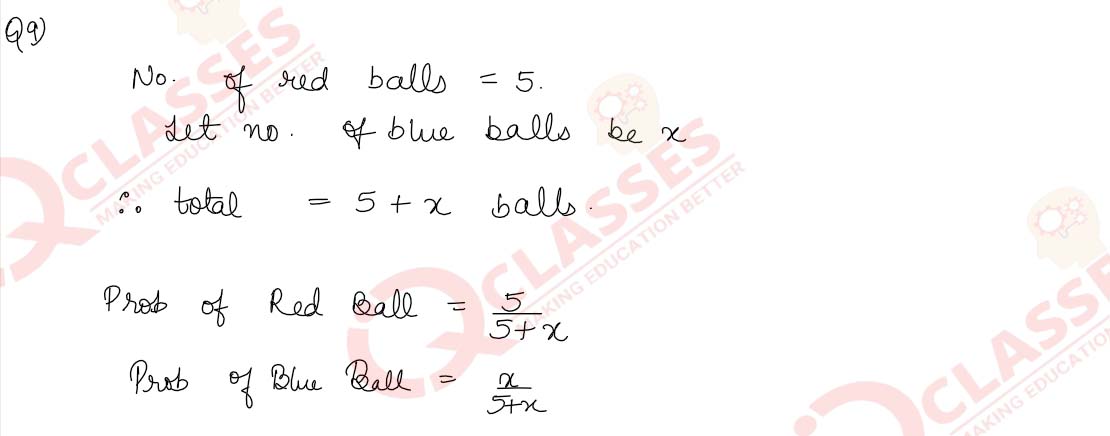 Q9)
No. of red balls = 5.
Let no. of blue balls be x
∴ total = 5 + x balls.
Prob of Red Ball = 5/(5+x)
Prob of Blue Ball = x/(5+x)
QCLASSES
MAKING EDUCATION BETTER
QCLASSES
MAKING EDUCATION BETTER
QCLASSES
MAKING EDUCATIO